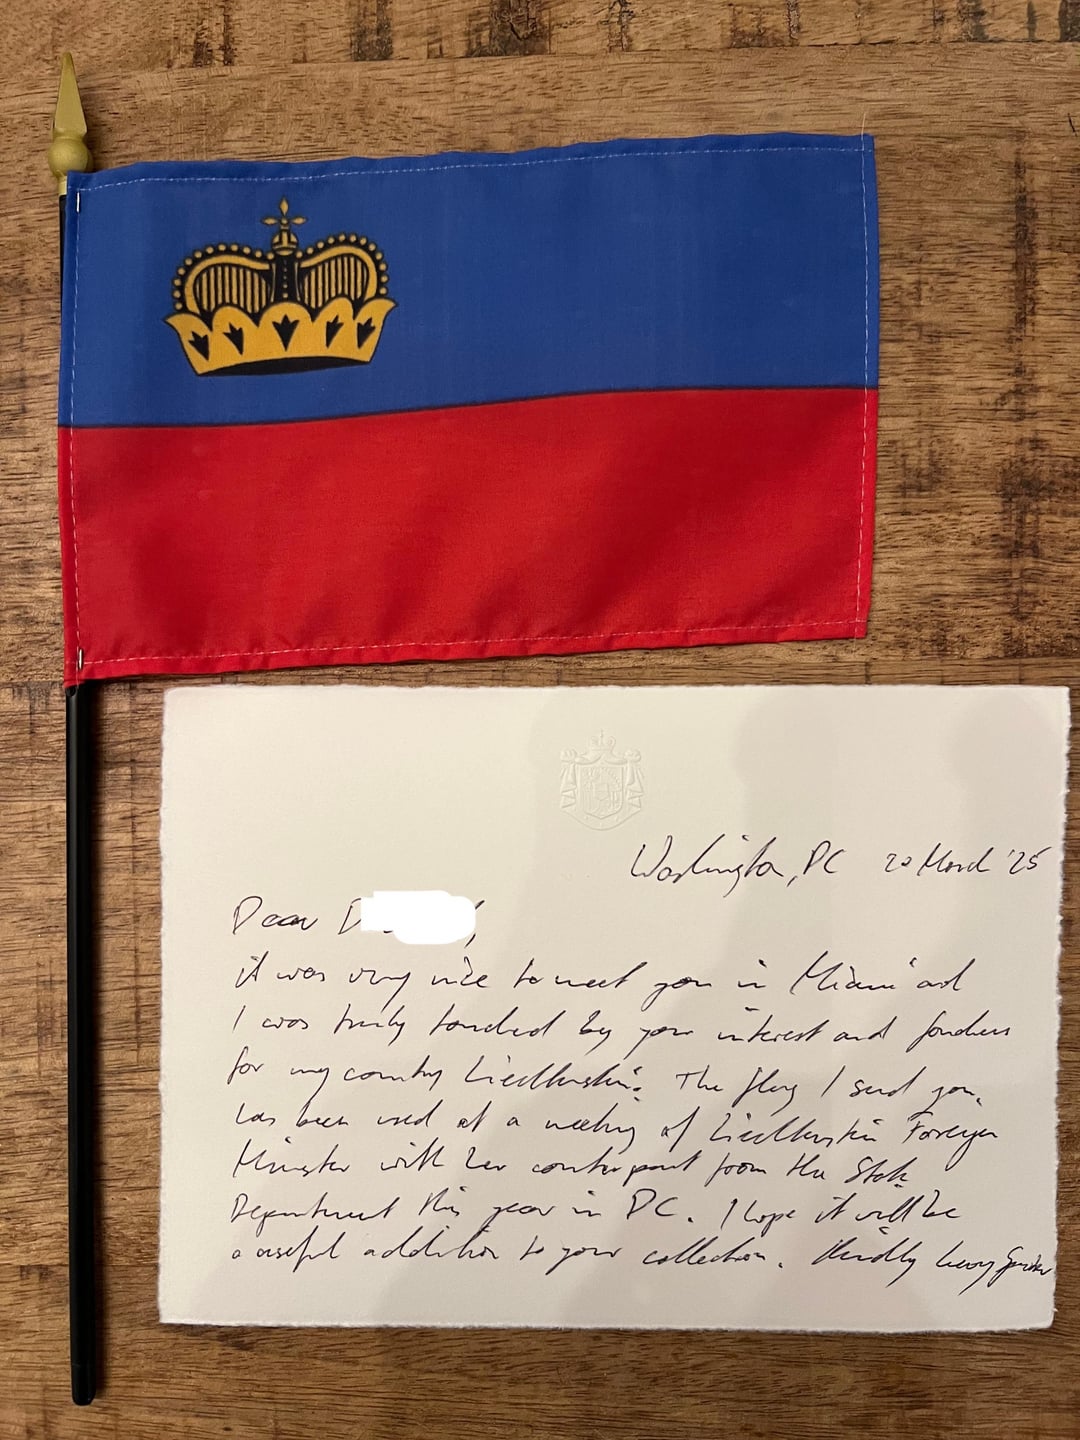 Washington, DC 20 March '25
Dear D
it was very nice to meet you in Miami and
I was truly touched by your interest and fondness
for my country Liechtenstein. The flag I send you,
has been used at a meeting of Liechtenstein Foreign
Minister with her counterpart from the State
Department this year in DC. I hope it will be
a useful addition to your collection. Kindly